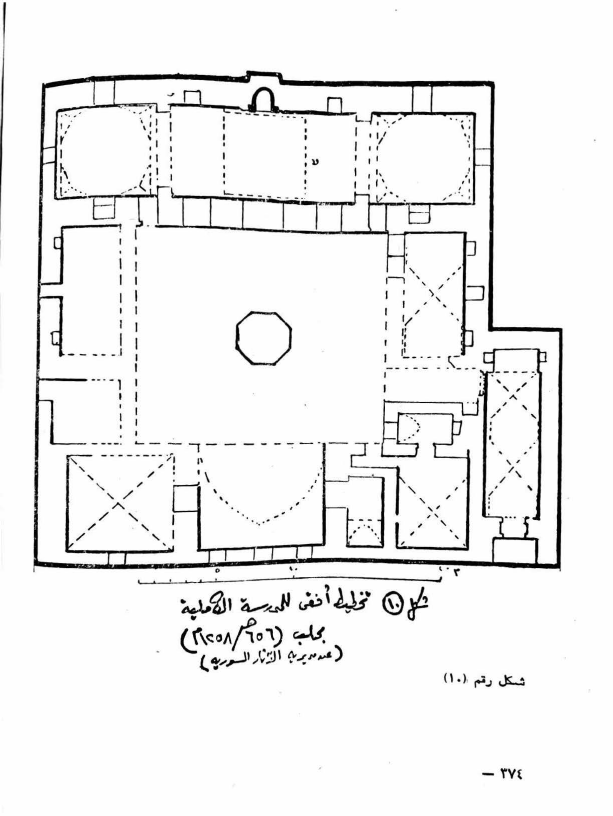 ٥ ١٠ ٢٠ م
شكل (١٠) تخطيط أفقى للمدرسة الكاملية
بحلب (٦٥٦هـ/١٢٥٨م)
(عن مديرية الآثار السورية)
شكل رقم (١٠)
٣٧٤ —